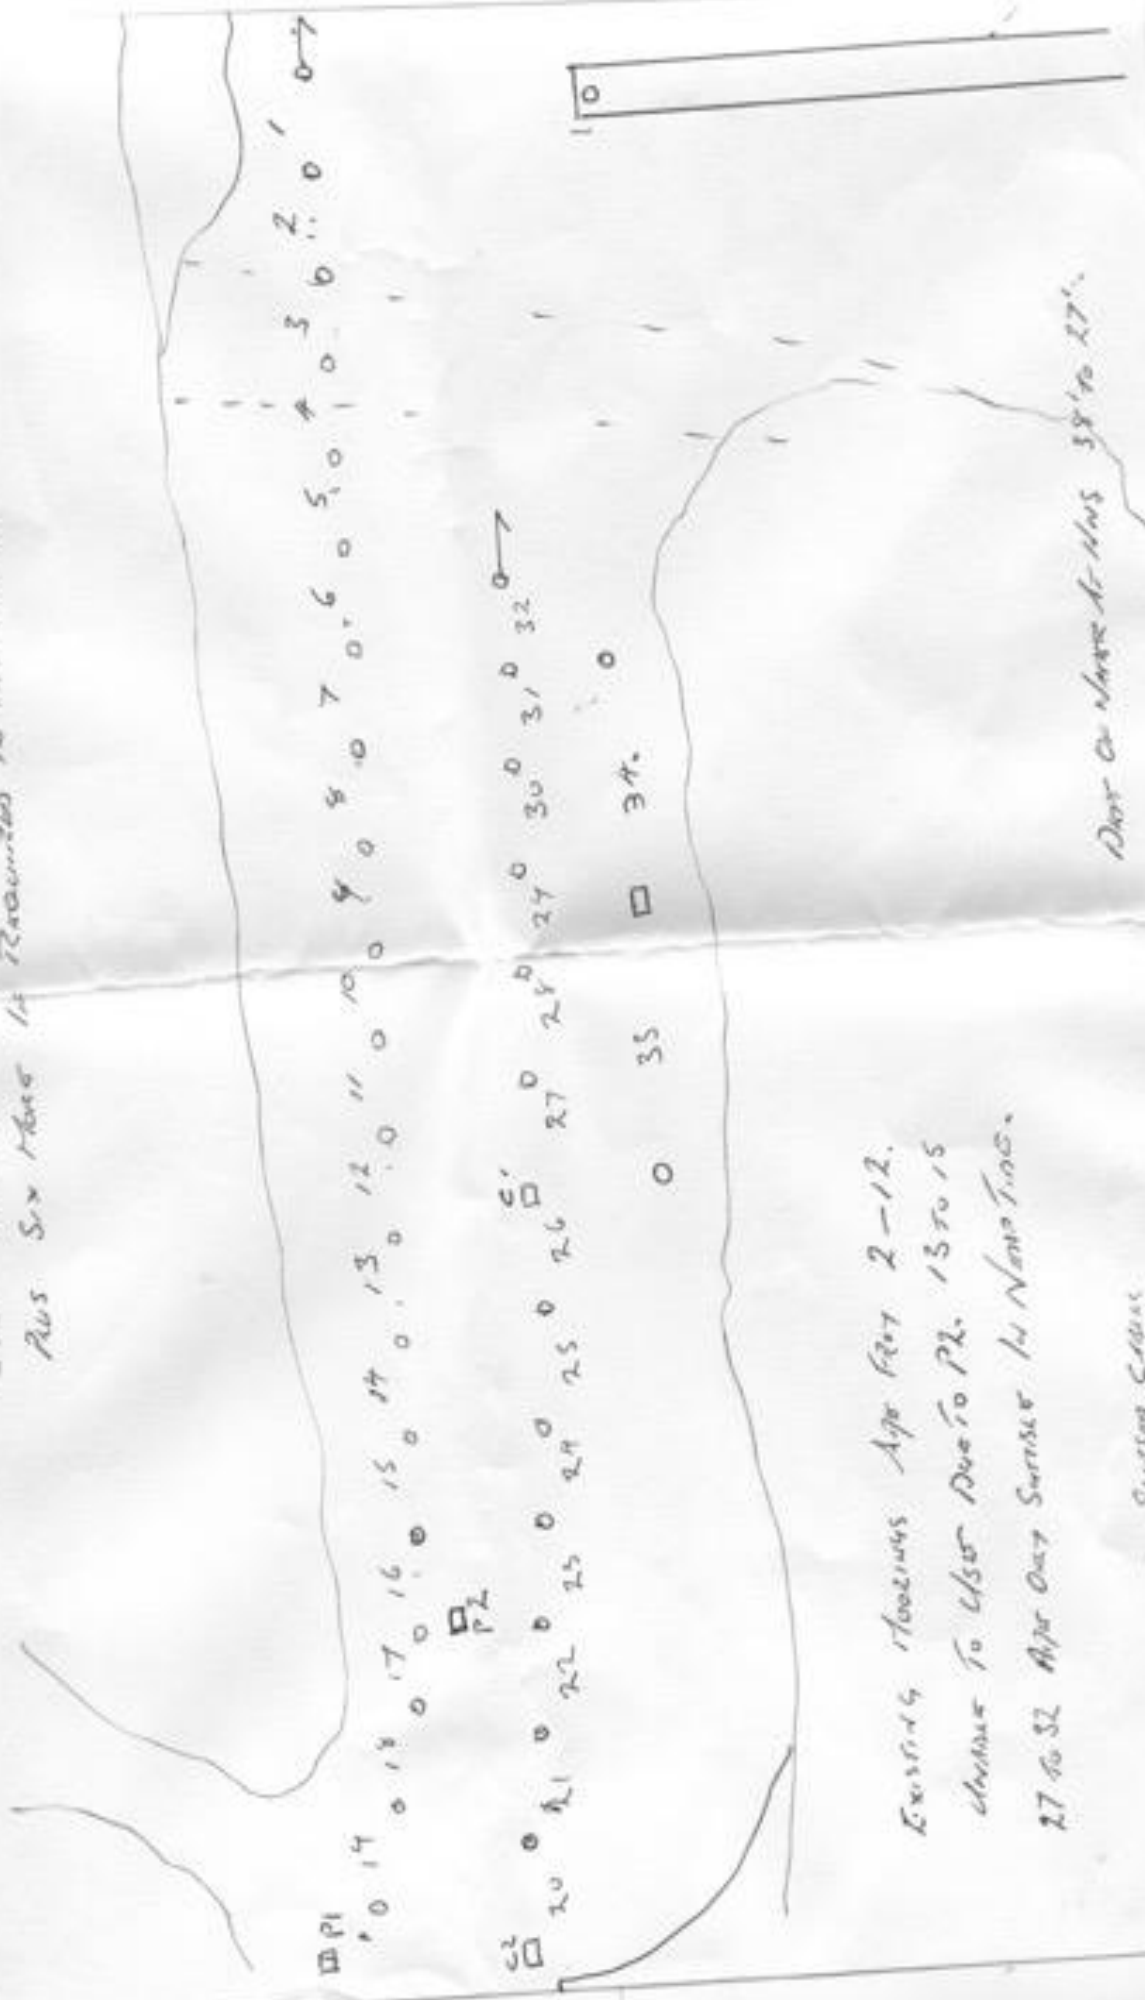 Plus Six More If Required
P1
19 18 17 16 15 14 13 12 11 10 9 8 7 6 5 4 3 2 1
P2
C2 C1
20 21 22 23 24 25 26 27 28 29 30 31 32
33 34.
Existing Moorings Are From 2-12.
Unable To Use Due To P2. 13 to 15
27 to 32 Are Only Suitable In Neap Tide.
of Water At HWS 38' to 27'.